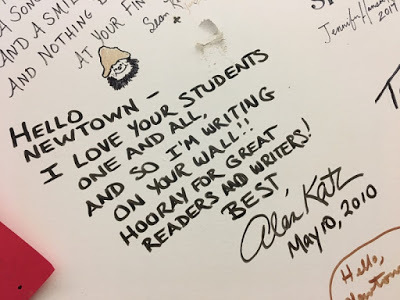 A SONG
AND A SMILE
AND NOTHING B
AT YOUR FIN
Sean
Jennifer
2014
HELLO
NEWTOWN –
I LOVE YOUR STUDENTS
ONE AND ALL,
AND SO I'M WRITING
ON YOUR WALL!!
HOORAY FOR GREAT
READERS AND WRITERS!
BEST,
Alan Katz
MAY 10, 2010
Hello,
Newtown